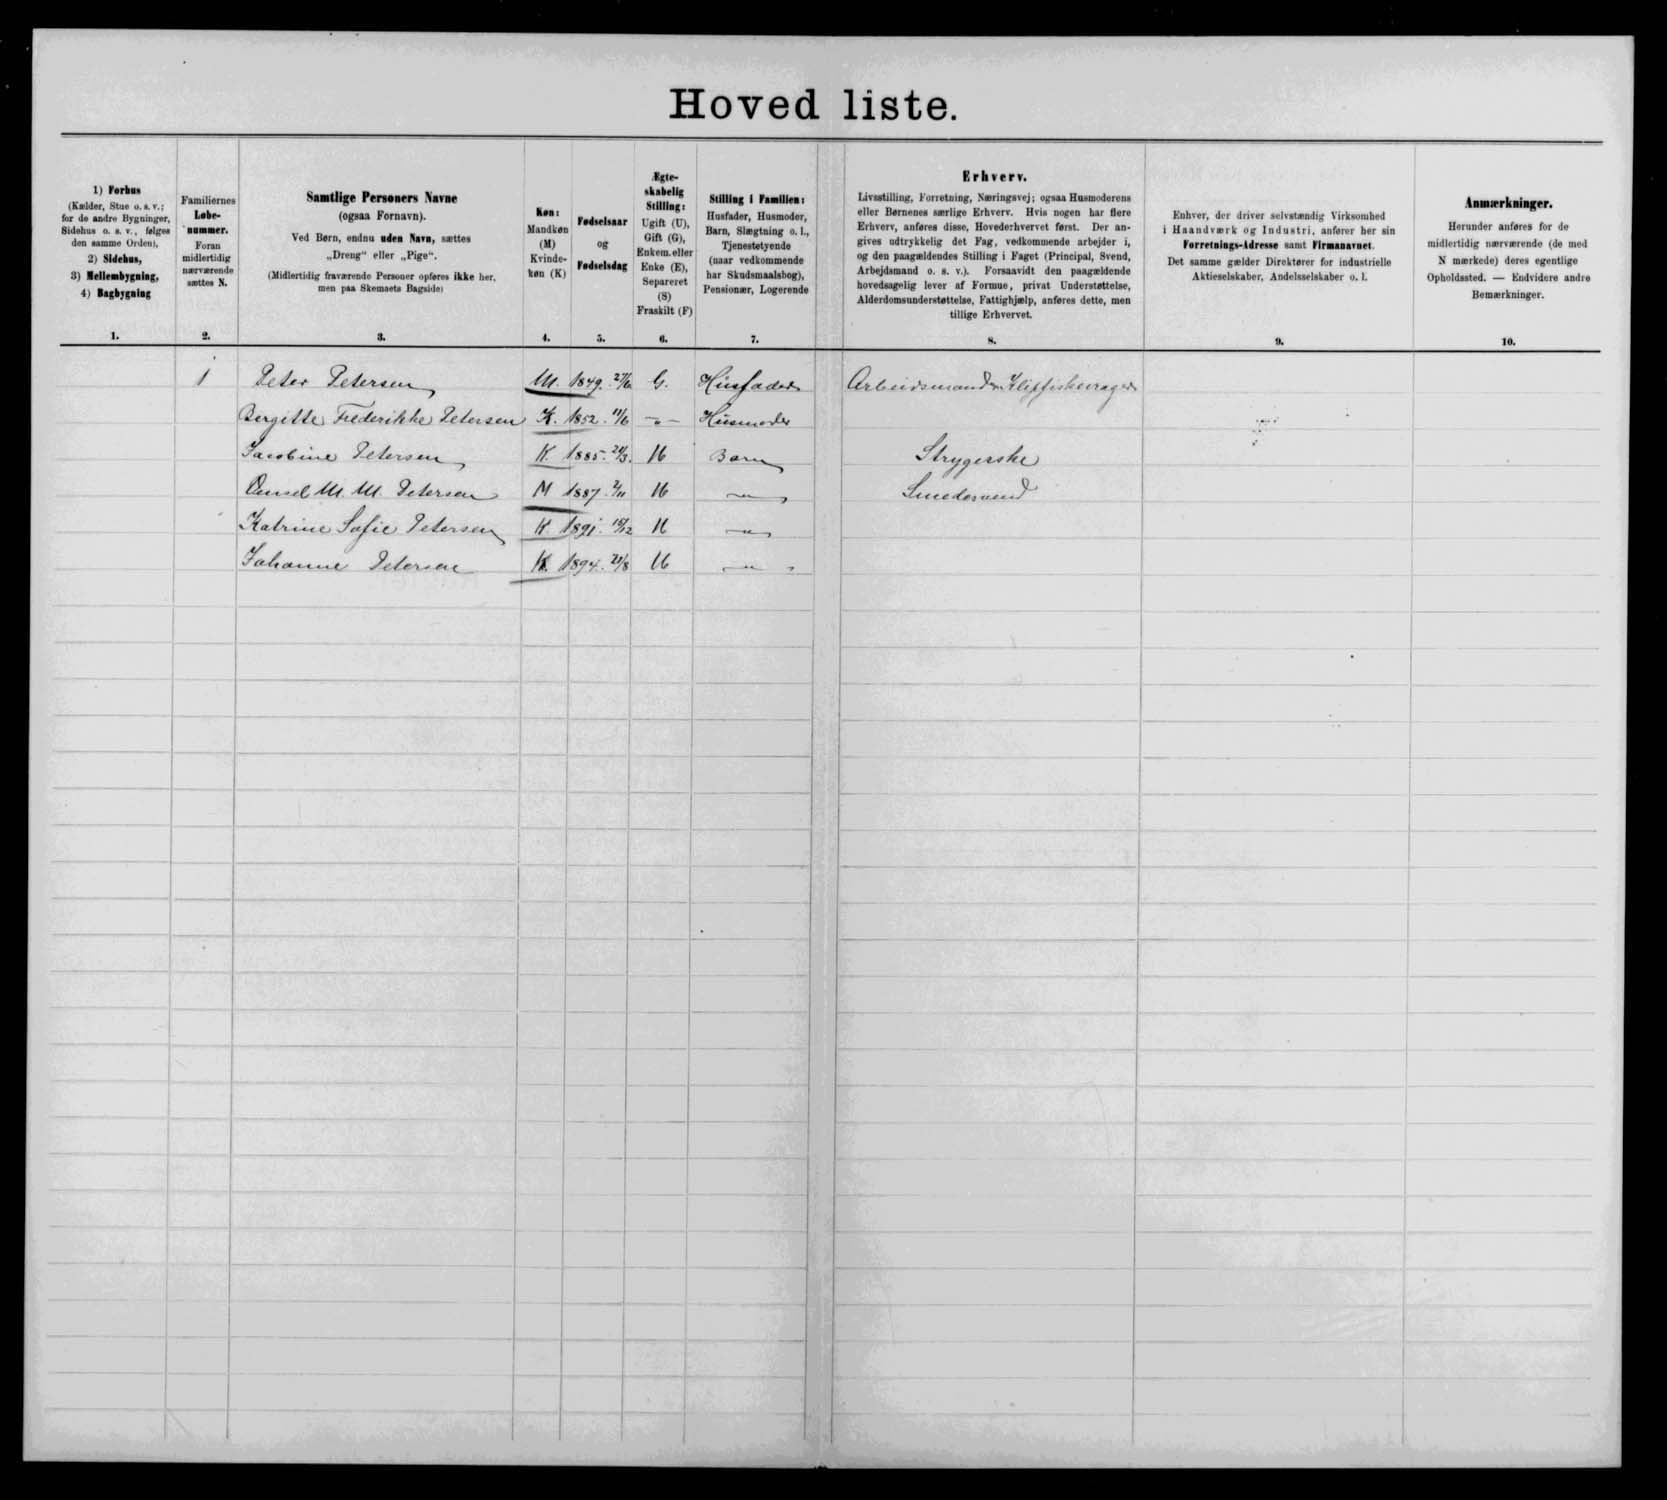 Hoved liste.
1) Forhus
(Kælder, Stue o. s. v.;
for de andre Bygninger,
Sidehus o. s. v., følges
den samme Orden),
2) Sidehus,
3) Mellembygning,
4) Bagbygning
1.
Familiernes
Løbe-
nummer.
Foran
midlertidig
nærværende
sættes N.
2.
Samtlige Personers Navne
(ogsaa Fornavn).
Ved Børn, endnu uden Navn, sættes
„Dreng“ eller „Pige“.
(Midlertidig fraværende Personer opføres ikke her,
men paa Skemaets Bagside)
3.
Køn:
Mandkøn
(M)
Kvinde-
køn (K)
4.
Fødselsaar
og
Fødselsdag
5.
Ægte-
skabelig
Stilling:
Ugift (U),
Gift (G),
Enkem. eller
Enke (E),
Separeret
(S)
Fraskilt (F)
6.
Stilling i Familien:
Husfader, Husmoder,
Barn, Slægtning o. l.,
Tjenestetyende
(naar vedkommende
har Skudsmaalsbog),
Pensionær, Logerende
7.
Erhverv.
Livsstilling, Forretning, Næringsvej; ogsaa Husmoderens
eller Børnenes særlige Erhverv. Hvis nogen har flere
Erhverv, anføres disse, Hovederhvervet først. Der an-
gives udtrykkelig det Fag, vedkommende arbejder i,
og den paagældendes Stilling i Faget (Principal, Svend,
Arbejdsmand o. s. v.). Forsaavidt den paagældende
hovedsagelig lever af Formue, privat Understøttelse,
Alderdomsunderstøttelse, Fattighjælp, anføres dette, men
tillige Erhvervet.
8.
Enhver, der driver selvstændig Virksomhed
i Haandværk og Industri, anfører her sin
Forretnings-Adresse samt Firmanavnet.
Det samme gælder Direktører for industrielle
Aktieselskaber, Andelsselskaber o. l.
9.
Anmærkninger.
Herunder anføres for de
midlertidig nærværende (de med
N mærkede) deres egentlige
Opholdssted. — Endvidere andre
Bemærkninger.
10.
1 Peter Petersen M. 1849. 27/6 G. Husfader Arbeidsmand
Bergitte Frederikke Petersen K. 1852. 11/6 -„- Husmoder
Jacobine Petersen K. 1885. U Barn Strygerske
M. M. Petersen M 1887. 2/11 U -„- Smedesvend
Katrine Sofie Petersen K. 1891. 15/12 U -„-
Johanne Petersen K. 1894. U -„-